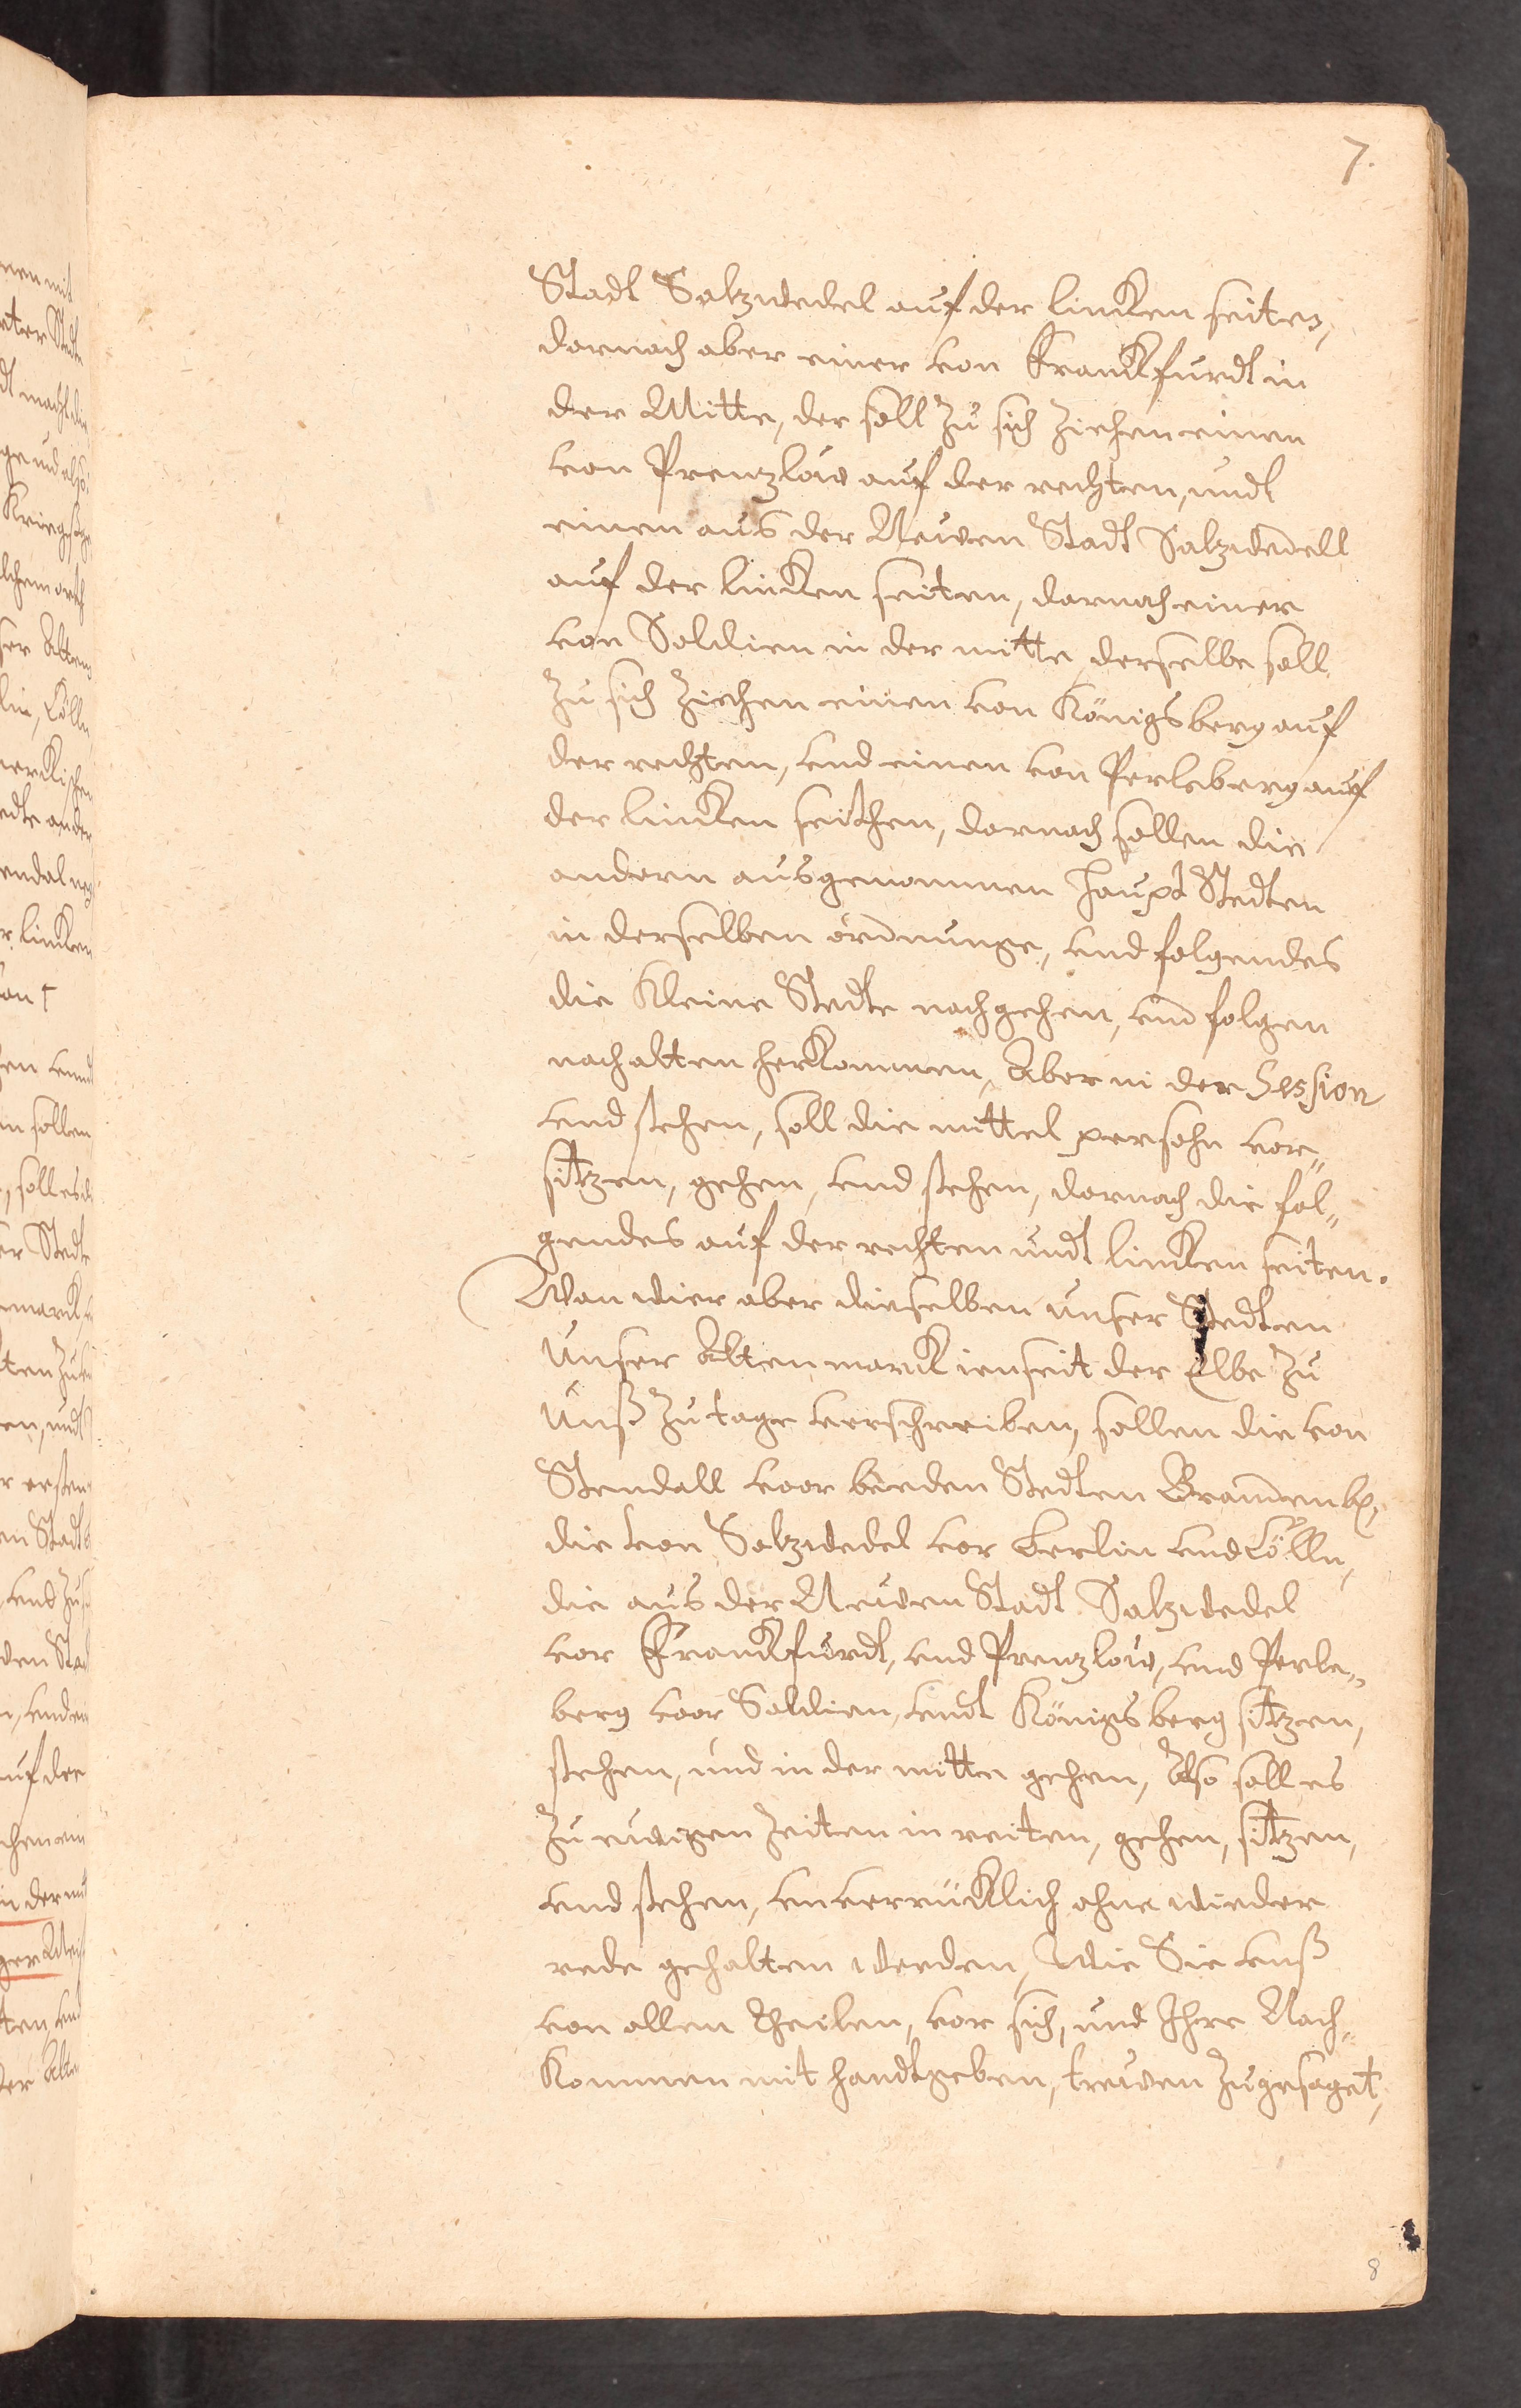 7.
Stadt Saltzwedel auf der lincken seiten,
darnach aber einer von Franckfurdt in
der Mitte, der soll zu sich ziehen einen
von Prenzlow auf der rechten, undt
einen aus der Newen Stadt Saltzwedell
auf der lincken seiten, darnach einer
von Soldien in der mitte, derselbe soll
zu sich ziechen einen von Königsberg auf
der rechten, vnd einen von Perleberg auf
der lincken seithen, darnach sollen die
andern ausgenommen haupt Stedten
in derselben ordnunge, vnd folgendes
die kleine Stedte nachgehen, vnd folgen
nach altem herkommen, Aber in der Session
vnd stehen, soll die mittel persohn vor„
sitzen, gehen, vnd stehen, darnach die fol„
gendes auf der rechten undt lincken seiten.
Wan wier aber dieselben unser Stedten
unser Altenmarck ienseit der Elbe zu
unß zu tage verschreiben, sollen die von
Stendall voor beeden Stedten Brandenb.,
die von Saltzwedel vor Berlin vnd Cölln,
die aus der Newen Stadt Saltzwedel
vor Franckfurdt, vnd Prenzlow, vnd Perle„
berg voor Soldien, vndt Königsberg sitzen,
stehen, und in der mitte gehen, Also soll es
zu ewigen zeiten in reiten, gehen, sitzen,
vnd stehen, vnverrücklich ohne wieder
rede gehalten werden, Wie Sie vnß
von allen theilen, vor sich, und Ihre Nach„
kommen mit handtgeben, trewen zugesaget,
8